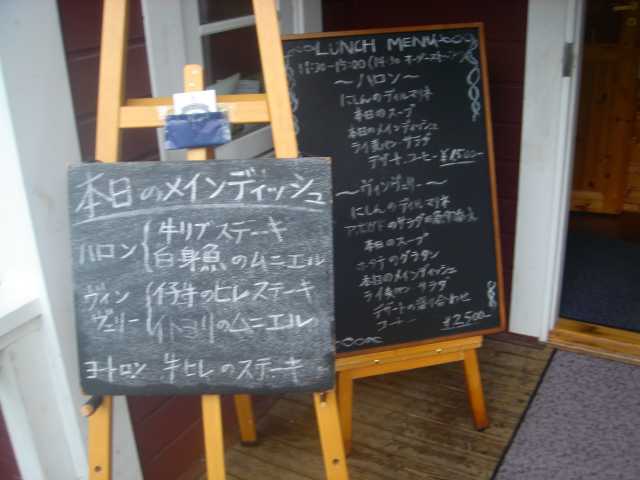 本日のメインディッシュ
ハロン
牛リブステーキ
白身魚のムニエル
ヴィン
ヴェリー
仔牛のヒレステーキ
イトヨリのムニエル
ヨートロン 牛ヒレのステーキ
LUNCH MENU
11:30-15:00 (14:30 オーダーストップ)
~ハロン~
にしんのディルマリネ
本日のスープ
本日のメインディッシュ
ライ麦パン サラダ
デザート コーヒー ¥1500-
~ヴィンヴェリー~
にしんのディルマリネ
アボガドのサラダ
本日のスープ
ホタテのグラタン
本日のメインディッシュ
ライ麦パン サラダ
デザートの盛り合わせ
コーヒー
¥2500-